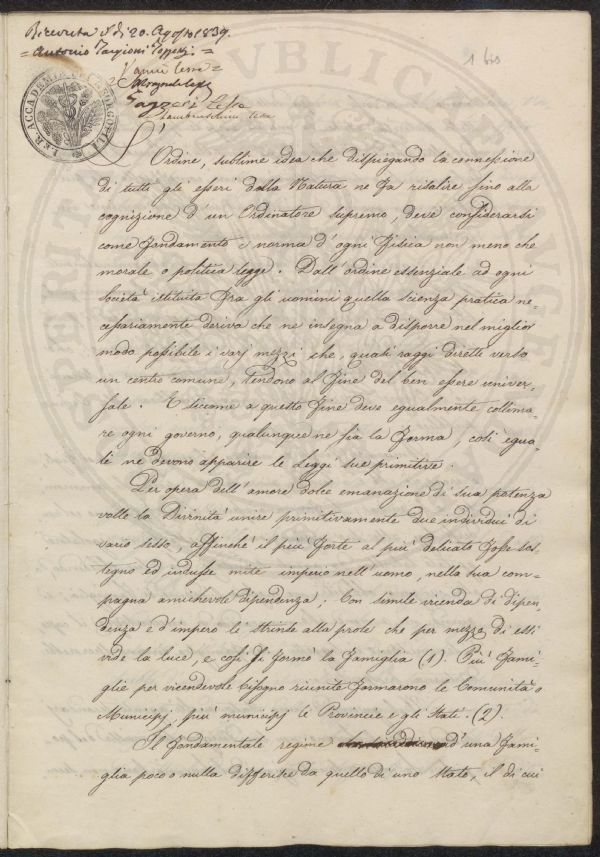 Ricevuta il dì 20. Agosto 1839.
= Antonio Targioni Tozzetti =
1 bis
I. E R. ACCADEMIA DEI GEORGOFILI
L'Ordine, sublime idea che dispiegando la connessione
di tutti gli esseri dalla Natura ne fa risalire fino alla
cognizione d'un Ordinatore supremo, deve considerarsi
come fondamento e norma d'ogni fisica non meno che
morale o politica legge. Dall'ordine essenziale ad ogni
società istituita fra gli uomini quella scienza pratica ne=
cessariamente deriva che ne insegna a disporre nel miglior
modo possibile i varj mezzi che, quasi raggi diretti verso
un centro comune, tendono al fine del ben essere univer=
sale. E siccome a questo fine deve egualmente collima=
re ogni governo, qualunque ne sia la forma, così egua=
li ne devono apparire le Leggi sue primitive.
Per opera dell'amore dolce emanazione di sua potenza
volle la Divinità unire primitivamente due individui di
vario sesso, affinchè il più forte al più delicato fosse sos
tegno ed indusse mite impero nell'uomo, nella sua com=
pagna amichevole dipendenza; Con simile vicenda di dipen
denza e d'impero li strinse alla prole che per mezzo di essi
vide la luce, e così si formò la famiglia (1). Più fami=
glie per vicendevole bisogno riunite formarono le Comunità o
Municipj, più municipj le Provincie e gli Stati. (2).
Il fondamentale regime d'una fami=
glia poco o nulla differisce da quello di uno Stato, il di cui